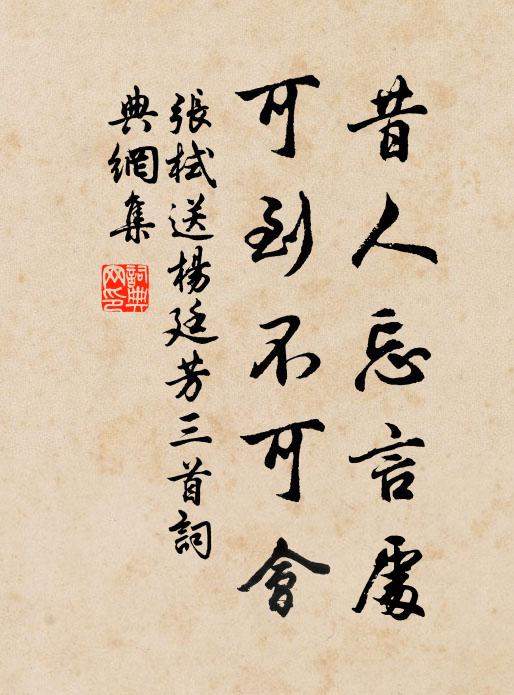 昔人忘言處
可到不可會
張栻送楊廷芳三首詞
典網集
詞典網印